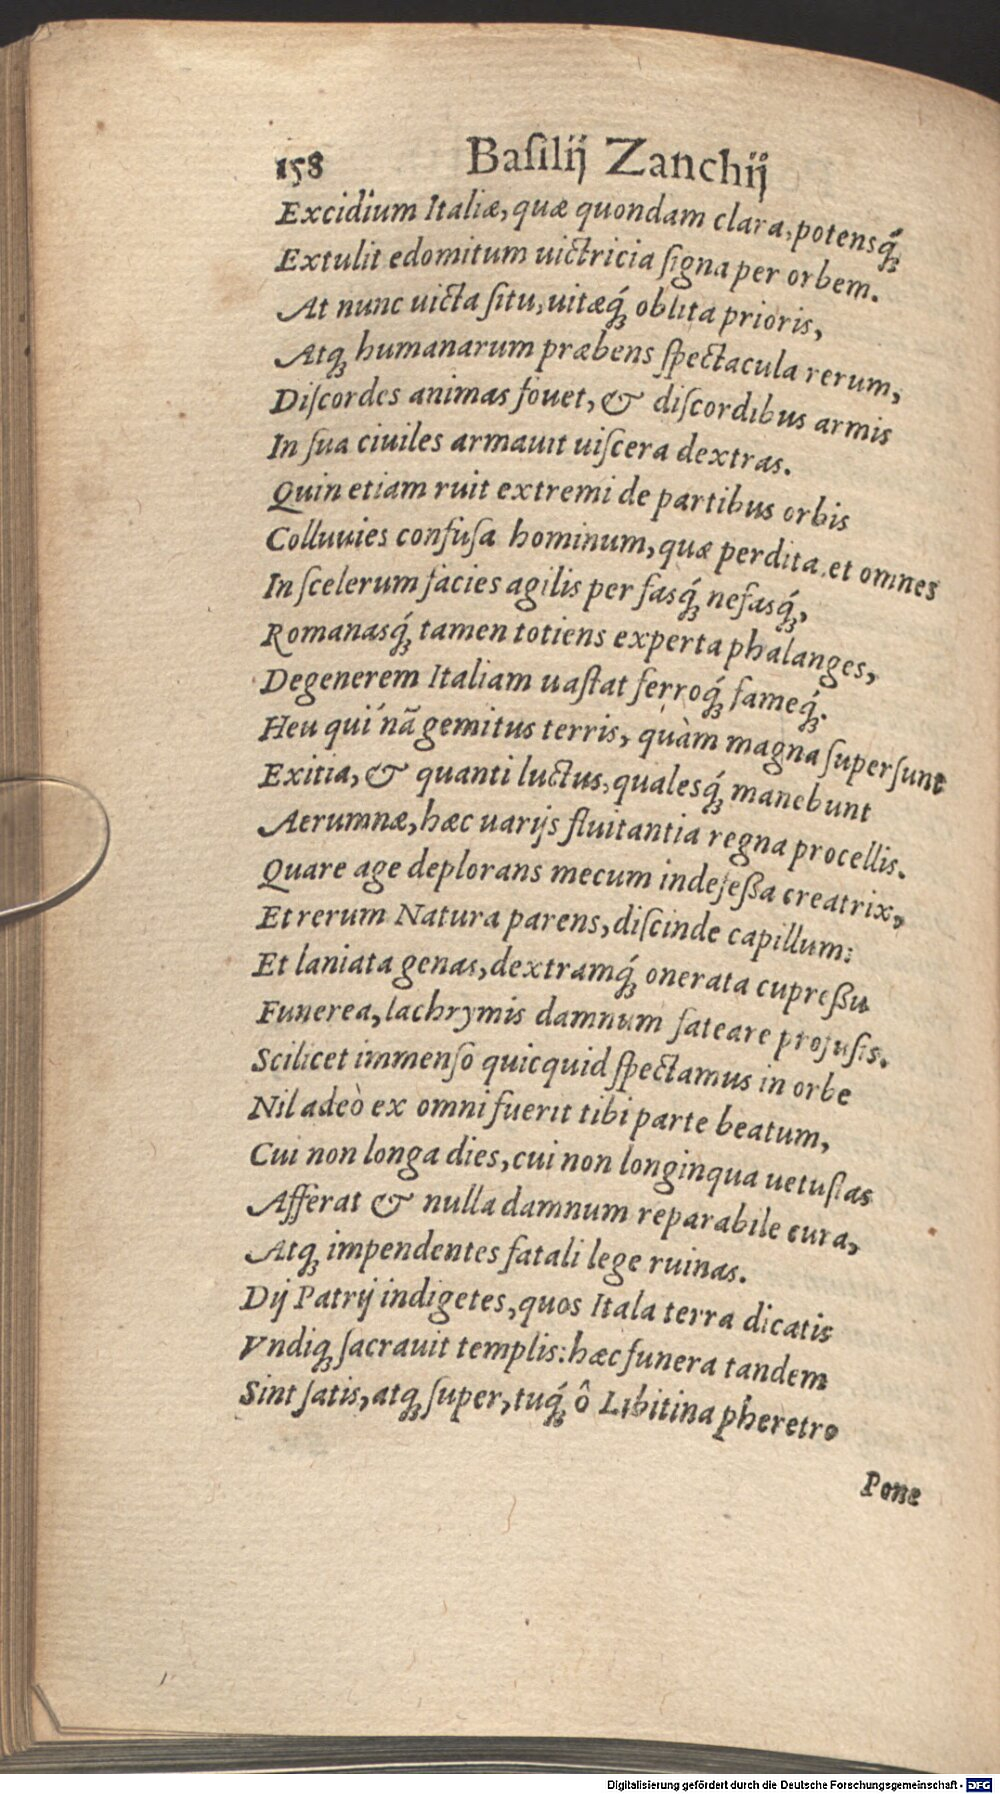 158 Baſilij Zanchij
Excidium Italiæ, quæ quondam clara, potensq́ꝫ
Extulit edomitum uictricia ſigna per orbem.
At nunc uicta ſitu, uitæq́ꝫ oblita prioris,
Atqꝫ humanarum præbens ſpectacula rerum,
Diſcordes animas fouet, & diſcordibus armis
In ſua ciuiles armauit uiſcera dextras.
Quin etiam ruit extremi de partibus orbis
Colluuies confuſa hominum, quæ perdita, et omnes
In ſcelerum facies agilis per fasq́ꝫ nefasq́ꝫ,
Romanasq́ꝫ tamen totiens experta phalanges,
Degenerem Italiam uaſtat ferroq́ꝫ fameq́ꝫ.
Heu qui nã gemitus terris, quàm magna ſuperſunt
Exitia, & quanti luctus, qualesq́ꝫ manebunt
Aerumnæ, hæc uarijs fluitantia regna procellis.
Quare age deplorans mecum indefeßa creatrix,
Et rerum Natura parens, diſcinde capillum:
Et laniata genas, dextramq́ꝫ onerata cupreßu
Funerea, lachrymis damnum fateare profuſis.
Scilicet immenſo quicquid ſpectamus in orbe
Nil adeò ex omni fuerit tibi parte beatum,
Cui non longa dies, cui non longinqua uetuſtas
Afferat & nulla damnum reparabile cura,
Atqꝫ impendentes fatali lege ruinas.
Dij Patrij indigetes, quos Itala terra dicatis
Vndiqꝫ ſacrauit templis: hæc funera tandem
Sint ſatis, atqꝫ ſuper, tuq́ꝫ ô Libitina pheretro
Pone
Digitalisierung gefördert durch die Deutsche Forschungsgemeinschaft - DFG